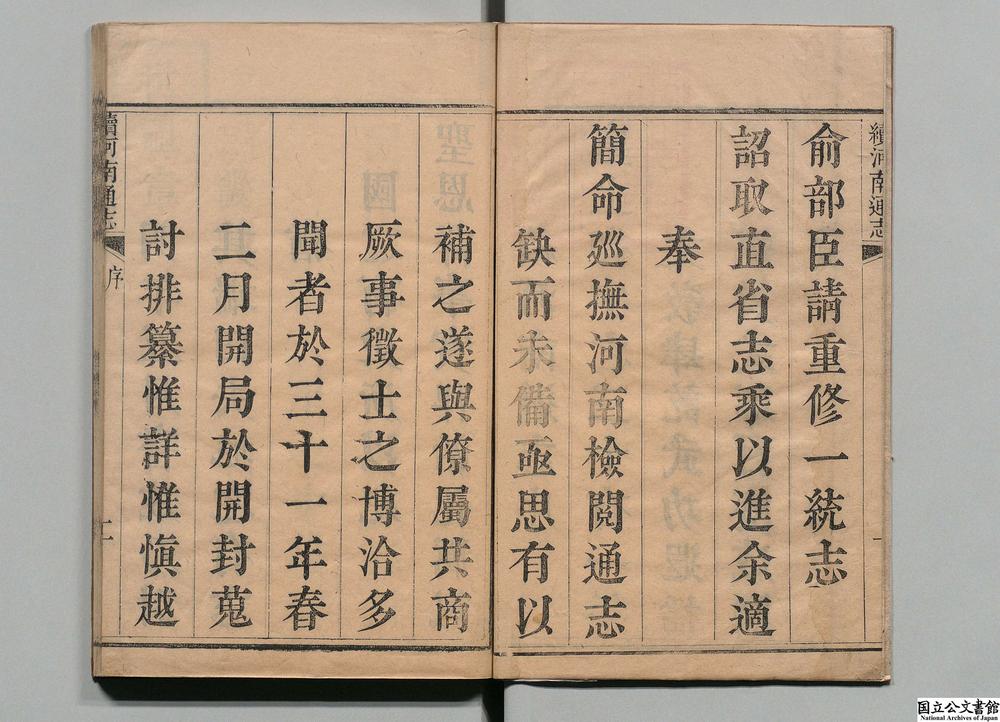 續河南通志
俞部臣請重修一統志
詔取直省志乘以進余適
奉
簡命廵撫河南檢閲通志
缺而未備亟思有以
補之遂與僚屬共商
厥事徵士之博洽多
聞者於三十一年春
二月開局於開封蒐
討排纂惟詳惟愼越
續河南通志
序
国立公文書館
National Archives of Japan